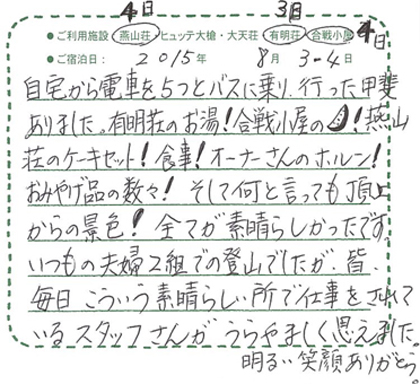 4日 3日
●ご利用施設 燕山荘・ヒュッテ大槍・大天荘・有明荘・合戦小屋 4日
●ご宿泊日: 2015年 8月 3-4日
自宅から電車を5つとバスに乗り、行った甲斐
ありました。有明荘のお湯!合戦小屋の!燕山
荘のケーキセット!食事!オーナーさんのホルン!
おみやげ品の数々!そして何と言っても頂上
からの景色!全てが素晴らしかったです。
いつもの夫婦2組での登山でしたが、皆、
毎日こういう素晴らしい所で仕事をされて
いるスタッフさんがうらやましく思えました。
明るい笑顔ありがとう。